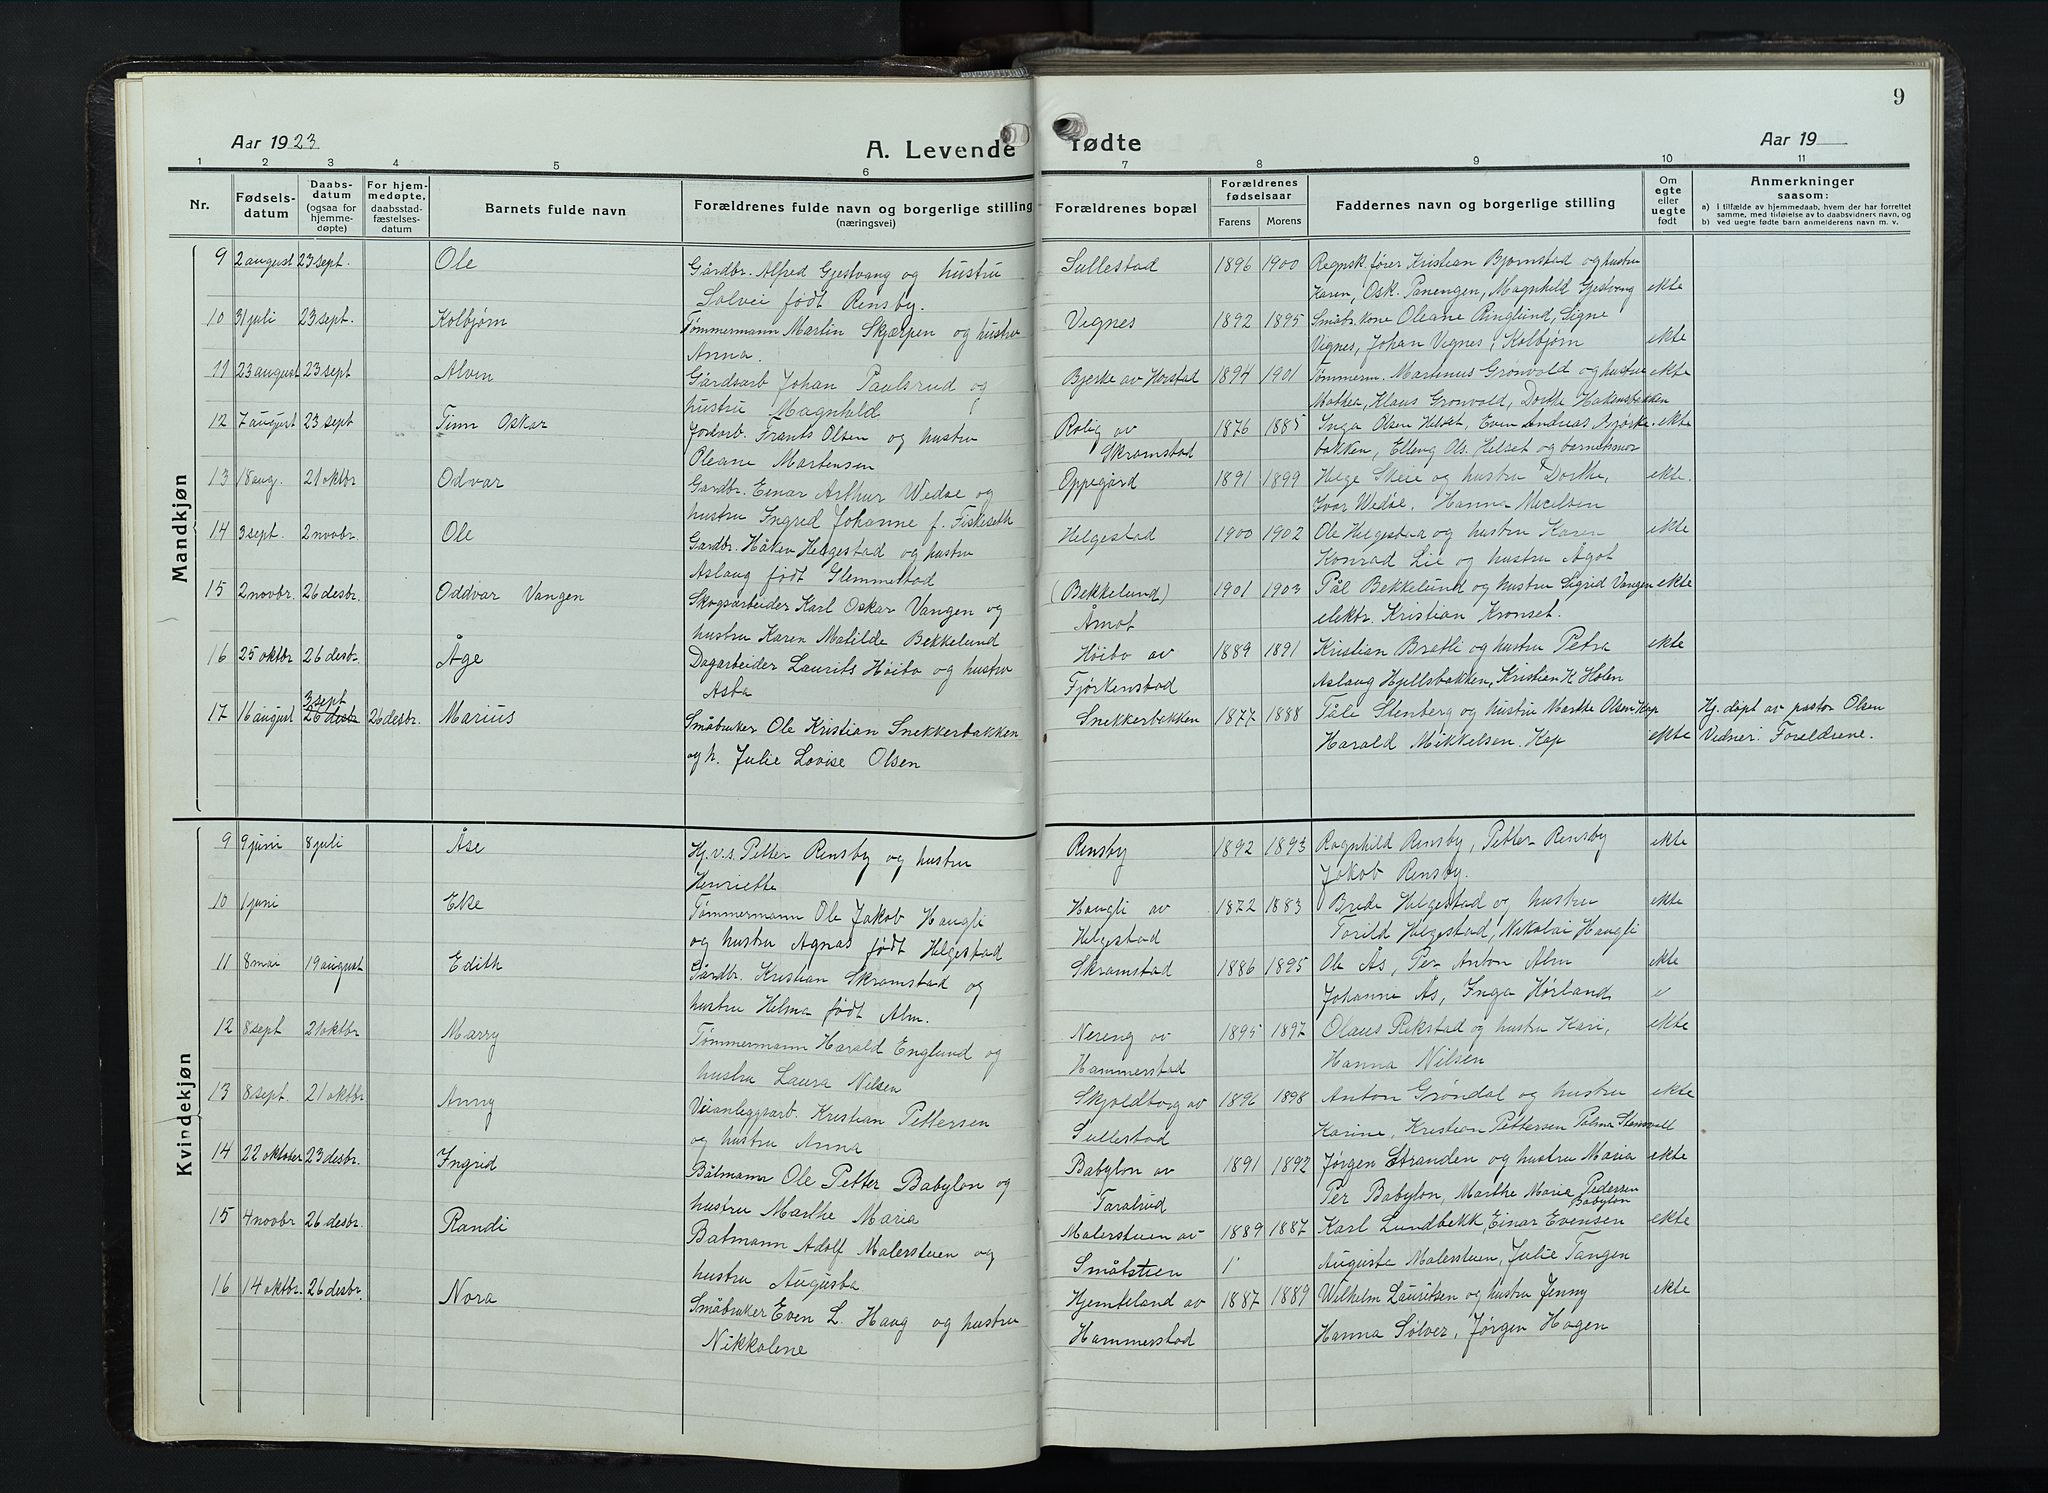 9
Aar 1923
A. Levende fødte
Aar 19
1 2 3 4 5 6 7 8 9 10 11
Nr.
Fødselsdatum
Daabsdatum (ogsaa for hjemmedøpte)
For hjemmedøpte, daabsstadfæstelsesdatum
Barnets fulde navn
Forældrenes fulde navn og borgerlige stilling (næringsvei)
Forældrenes bopæl
Forældrenes fødselsaar
Farens Morens
Faddernes navn og borgerlige stilling
Om egte eller uegte født
Anmerkninger saasom:
a) I tilfælde av hjemmedaab, hvem der har forrettet samme, med tilføielse av to daabsvidners navn, og
b) ved uegte fødte barn anmelderens navn m. v.
Mandkjøn
9 2 august 23 sept. Ole Gårdbr. Alfred Gjestvang og hustru Sullestad 1896 1900 Regnsk.fører Kristian Bjørnstad og hustru
Solvei født Rensby. Karen, Osk. Panengen, Magnhild Gjestvang ekte
10 31 juli 23 sept. Kolbjørn Tømmermann Martin Skjærpen og hustru Vignes 1892 1895 Småbr.kone Oleane Ringlund, Signe
Anna. Vignes, Johan Vignes, Kolbjørn ekte
11 23 august 23 sept Alvin Gårdsarb Johan Paulsrud og Bjerke av Horstad 1894 1901 Tømmerm. Martinus Grønvold og hustru ekte
hustru Magnhild Mathea, Klaus Grønvold, Dorthe Hakenstakken
12 7 august 23 sept Finn Oskar Jordarb. Frants Olsen og hustru Bolig av 1876 1885 Inga Olsen Helset, Even Andreas Bjørke- ekte
Oleane Martensen Skramstad bakken, Elling Ols. Helset og barnets mor
13 18 aug. 21 oktbr Odvar Gardbr. Einar Arthur Wedøe og Oppegård 1891 1899 Helge Skeie og hustru Dorthe, ekte.
hustru Ingrid Johanne f. Fiskeseth Ivar Wedøe. Hanna Nicelsen
14 3 sept. 2 novbr. Ole Gardbr. Håken Helgestad og hustru Helgestad 1900 1902 Ole Helgestad og hustru Karen ekte
Aslaug født Glemmestad Konrad Lie og hustru Ågot
15 2 novbr. 26 desbr. Oddvar Vangen Skogsarbeider Karl Oskar Vangen og (Bekkelund) 1901 1903 Pål Bekkelund og hustru Sigrid Vangen ekte
hustru Karen Matilde Bekkelund Åmot elektr. Kristian Kronset.
16 25 oktbr 26 desb. Åge Dagarbeider Laurits Høibo og hustru Høibo av 1889 1891 Kristian Bratli og hustru Petra ekte
Asta Fjørkenstad Aslaug Hjellsbakken, Kristian K Holen
3 sept
17 16 august 26 desbr 26 desbr. Marius Småbruker Ole Kristian Snekkerbakken Snekkerbakken 1877 1888 Tåle Stenberg og hustru Marthe Olsen Kap Hj. døpt av pastor Olsen
og h. Julie Lovise Olsen Harald Mikkelsen. Kap ekte Vidner: Foreldrene.
Kvindekjøn
9 9 juni 8 juli Åse Hj.v.s. Petter Rensby og hustru Rensby 1892 1893 Ragnhild Rensby, Petter Rensby ekte
Henriette Jakob Rensby.
10 1 juni Else Tømmermann Ole Jakob Haugli Haugli av 1872 1883 Brede Helgestad og hustru ekte
og hustru Agnas født Helgestad Helgestad Torild Helgestad, Nikolai Haugli
11 8 mai 19 august Edith Gårdbr. Kristian Skramstad og Skramstad 1886 1895 Ole Ås, Per Anton Alm ekte
hustru Helma født Alm. Johanne Ås, Inga Hørland
12 8 sept 21 oktbr Marry Tømmermann Harald Englund og Nereng av 1895 1897 Olaus Rekstad og hustru Kari, ekte
hustru Laura Nilsen Hammerstad Hanna Nilsen
13 8 sept. 21 oktbr Anny Veianleggsarb. Kristian Pettersen Skjoldborg av 1896 1898 Anton Grøndal og hustru ekte
og hustru Anna Sullestad Karine, Kristian Pettersen Palma Stensvoll
14 22 oktober 23 desbr. Ingrid Båtmann Ole Petter Babylon og Babylon av 1891 1892 Jørgen Stranden og hustru Maria ekte
hustru Marthe Maria Taralrud Per Babylon, Marthe Marie Pedersen Babylon
15 4 novbr 26 desbr. Randi Båtmann Adolf Malerstuen og Malerstuen av 1889 1887 Karl Lundbekk, Einar Evensen ekte
hustru Augusta Småtstien Auguste Malerstuen, Julie Tangen
16 14 oktbr. 26 desbr. Nora Småbruker Even L. Haug og hustru Hjemteland av 1887 1889 Wilhelm Lauritsen og hustru Jenny ekte
Nikkoline Hammerstad Hanna Sølver, Jørgen Hagen